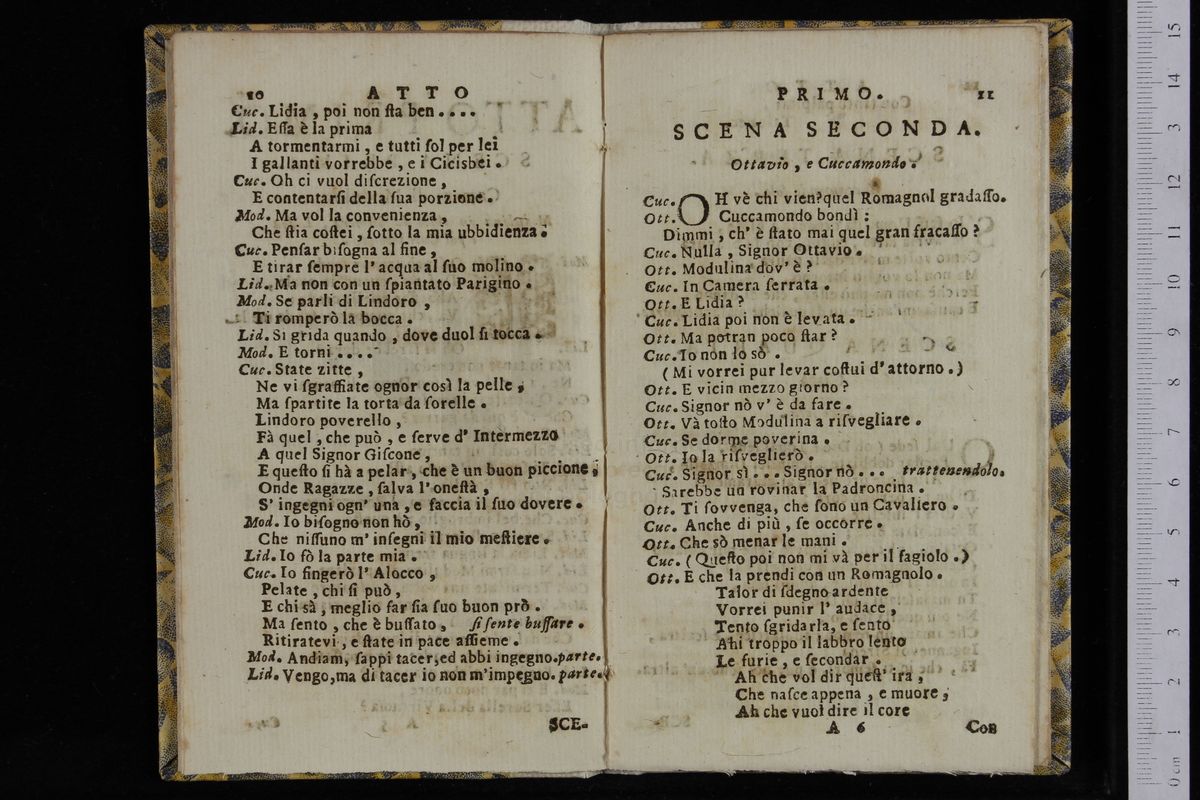 10 ATTO
Cuc. Lidia , poi non ſta ben . . . .
Lid. Eſſa è la prima
A tormentarmi , e tutti ſol per lei
I gallanti vorrebbe , e i Cicisbei .
Cuc. Oh ci vuol diſcrezione ,
E contentarſi della ſua porzione .
Mod. Ma vol la convenienza ,
Che ſtia coſtei , ſotto la mia ubbidienza .
Cuc. Penſar biſogna al fine ,
E tirar ſempre l' acqua al ſuo molino .
Lid. Ma non con un ſpiantato Parigino .
Mod. Se parli di Lindoro ,
Ti romperò la bocca .
Lid. Si grida quando , dove duol ſi tocca .
Mod. E torni . . . .
Cuc. State zitte ,
Ne vi ſgraffiate ognor così la pelle ,
Ma ſpartite la torta da ſorelle .
Lindoro poverello ,
Fà quel , che può , e ſerve d' Intermezzo
A quel Signor Giſcone ,
E queſto ſi hà a pelar , che è un buon piccione ,
Onde Ragazze , ſalva l' oneſtà ,
S' ingegni ogn' una , e faccia il ſuo dovere .
Mod. Io biſogno non hò ,
Che niſſuno m' inſegni il mio meſtiere .
Lid. Io fò la parte mia .
Cuc. Io fingerò l' Alocco ,
Pelate , chi ſi può ,
E chi sà , meglio far ſia ſuo buon prò .
Ma ſento , che è buſſato , ſi ſente buſſare .
Ritiratevi , e ſtate in pace aſſieme .
Mod. Andiam, ſappi tacer,ed abbi ingegno.parte.
Lid. Vengo,ma di tacer io non m'impegno. parte.
SCE-
PRIMO. 11
SCENA SECONDA.
Ottavio , e Cuccamondo .
Cuc. OH vè chi vien?quel Romagnol gradaſſo.
Ott. Cuccamondo bondì :
Dimmi , ch' è ſtato mai quel gran fracaſſo ?
Cuc. Nulla , Signor Ottavio .
Ott. Modulina dov' è ?
Cuc. In Camera ſerrata .
Ott. E Lidia ?
Cuc. Lidia poi non è levata .
Ott. Ma potran poco ſtar ?
Cuc. Io non lo sò .
( Mi vorrei pur levar coſtui d' attorno . )
Ott. E vicin mezzo giorno ?
Cuc. Signor nò v' è da fare .
Ott. Và toſto Modulina a riſvegliare .
Cuc. Se dorme poverina .
Ott. Io la riſveglierò .
Cuc. Signor sì . . . Signor nò . . . trattenendolo.
Sarebbe un rovinar la Padroncina .
Ott. Ti ſovvenga, che ſono un Cavaliero .
Cuc. Anche di più , ſe occorre .
Ott. Che sò menar le mani .
Cuc. ( Queſto poi non mi và per il fagiolo . )
Ott. E che la prendi con un Romagnolo .
Talor di ſdegno ardente
Vorrei punir l' audace ,
Tento ſgridarla, e ſento
Ahi troppo il labbro lento
Le furie , e ſecondar .
Ah che vol dir queſt' ira ,
Che naſce appena , e muore ,
Ah che vuol dire il core
A 6 Con